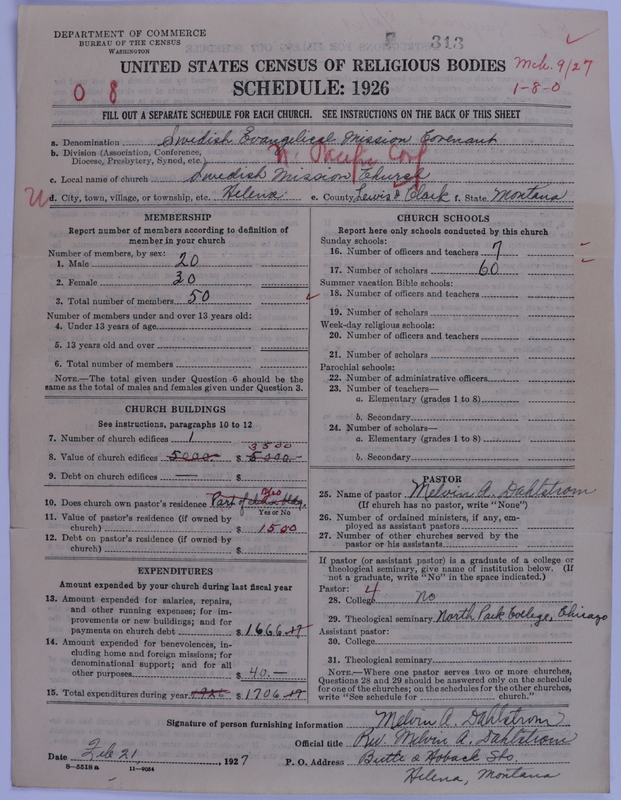 DEPARTMENT OF COMMERCE
BUREAU OF THE CENSUS
WASHINGTON
313
UNITED STATES CENSUS OF RELIGIOUS BODIES
Mch. 9/27
SCHEDULE: 1926
0 8
1-8-0
FILL OUT A SEPARATE SCHEDULE FOR EACH CHURCH. SEE INSTRUCTIONS ON THE BACK OF THIS SHEET
a. Denomination Swedish Evangelical Mission Covenant
b. Division (Association, Conference, Diocese, Presbytery, Synod, etc.) N. Pacific Conf
c. Local name of church Swedish Mission Church
d. City, town, village, or township, etc. Helena e. County Lewis & Clark f. State Montana
MEMBERSHIP
Report number of members according to definition of
member in your church
Number of members, by sex:
1. Male 20
2. Female 30
3. Total number of members 50
Number of members under and over 13 years old:
4. Under 13 years of age
5. 13 years old and over
6. Total number of members
NOTE.—The total given under Question 6 should be the
same as the total of males and females given under Question 3.
CHURCH BUILDINGS
See instructions, paragraphs 10 to 12
7. Number of church edifices 1
3500
8. Value of church edifices 5000.- $ 5000.-
9. Debt on church edifices — $
yes
10. Does church own pastor's residence Part of church bldg.
Yes or No
11. Value of pastor's residence (if owned by
church) $ 1500
12. Debt on pastor's residence (if owned by
church) $
EXPENDITURES
Amount expended by your church during last fiscal year
13. Amount expended for salaries, repairs,
and other running expenses; for im-
provements or new buildings; and for
payments on church debt $ 1666.17
14. Amount expended for benevolences, in-
cluding home and foreign missions; for
denominational support; and for all
other purposes $ 40.—
15. Total expenditures during year 1926 $ 1706.17
CHURCH SCHOOLS
Report here only schools conducted by this church
Sunday schools:
16. Number of officers and teachers 7
17. Number of scholars 60
Summer vacation Bible schools:
18. Number of officers and teachers
19. Number of scholars
Week-day religious schools:
20. Number of officers and teachers
21. Number of scholars
Parochial schools:
22. Number of administrative officers
23. Number of teachers—
a. Elementary (grades 1 to 8)
b. Secondary
24. Number of scholars—
a. Elementary (grades 1 to 8)
b. Secondary
PASTOR
25. Name of pastor Melvin A. Dahlstrom
(If church has no pastor, write "None")
26. Number of ordained ministers, if any, em-
ployed as assistant pastors
27. Number of other churches served by the
pastor or his assistants
If pastor (or assistant pastor) is a graduate of a college or
theological seminary, give name of institution below. (If
not a graduate, write "No" in the space indicated.)
Pastor: 4
28. College No
29. Theological seminary North Park College, Chicago
Assistant pastor:
30. College
31. Theological seminary
NOTE.—Where one pastor serves two or more churches,
Questions 28 and 29 should be answered only on the schedule
for one of the churches; on the schedules for the other churches,
write "See schedule for church."
Signature of person furnishing information Melvin A. Dahlstrom
Official title Rev. Melvin A. Dahlstrom
Date Feb 21, 1927 P. O. Address Butte & Hoback Sts.
8—5518 a 11—9054 Helena, Montana